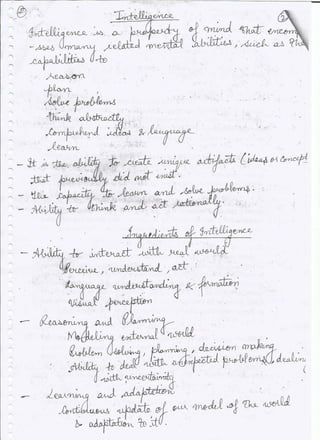 Intelligence
Intelligence is a property of mind that encom
- sses many related mental abilities, such as the
capabilities to
. reason
. plan
. solve problems
. think abstractly
. Comprehend ideas & language
. learn
- It is the ability to create unique artifacts (ideas or concept
that previously did not exist.
- The capacity to learn and solve problems.
- Ability to think and act rationally.
Ingredients of Intelligence
- Ability to interact with real world
Perceive, understand, act
Language understanding & formation
Visual perception
- Reasoning and Planning
Modeling external world
Problem solving, planning, decision making
Ability to deal with unexpected problems, dealin
with uncertainity
- Learning and adaptation
Continuous update of our model of the world
& adaptation to it.